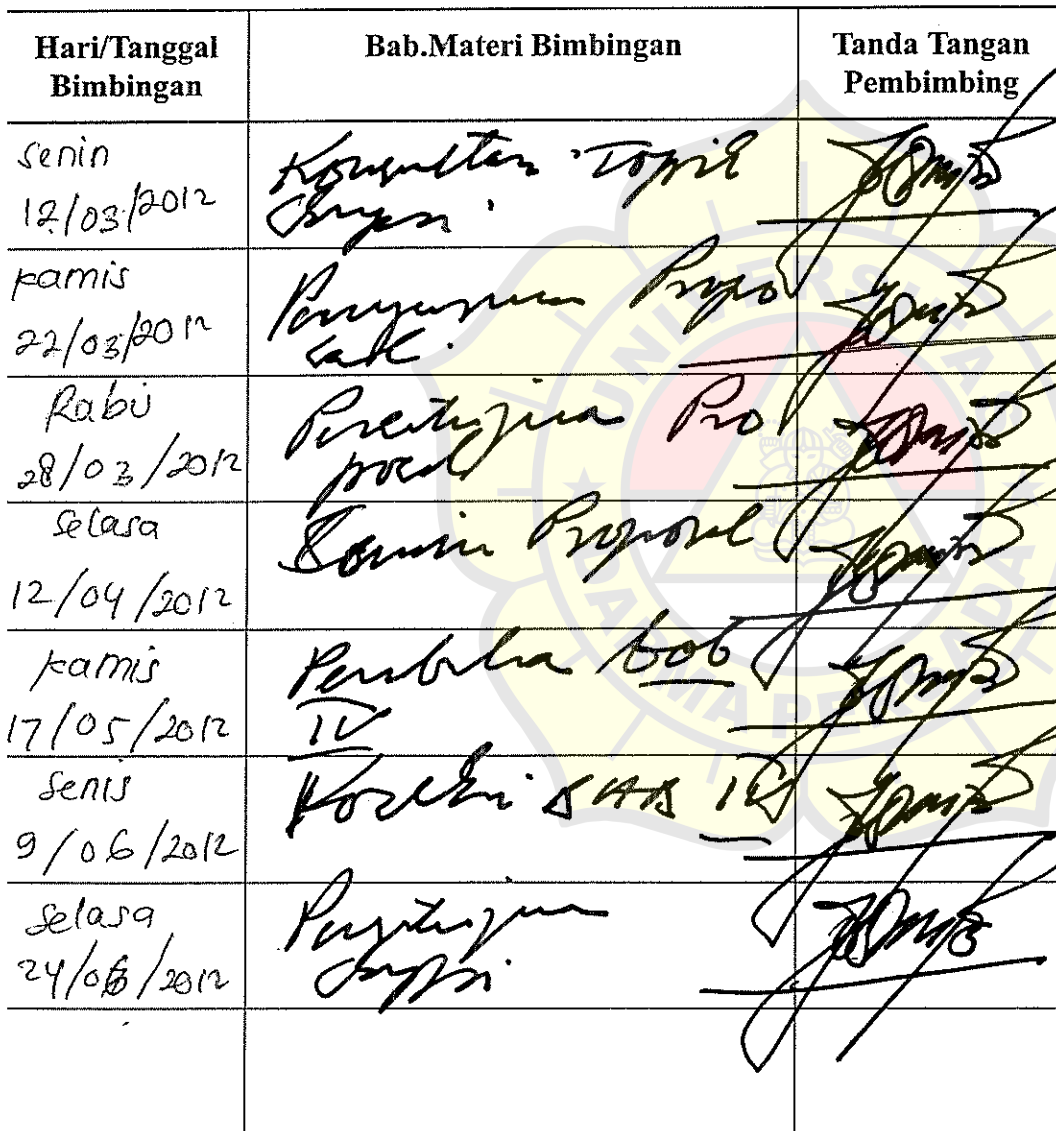 Hari/Tanggal
Bimbingan
Bab.Materi Bimbingan
Tanda Tangan
Pembimbing
Senin
12/03/2012
Topik
Kamis
22/03/2012
Penyusunan Propo
sal.
Rabu
28/03/2012
Persetujuan Pro
posal
Selasa
12/04/2012
Proposal
Kamis
17/05/2012
bab
IV
Senis
9/06/2012
Koreksi BAB IV
Selasa
24/06/2012
Persetujuan
UNIVERSITAS
DARMA PERSADA